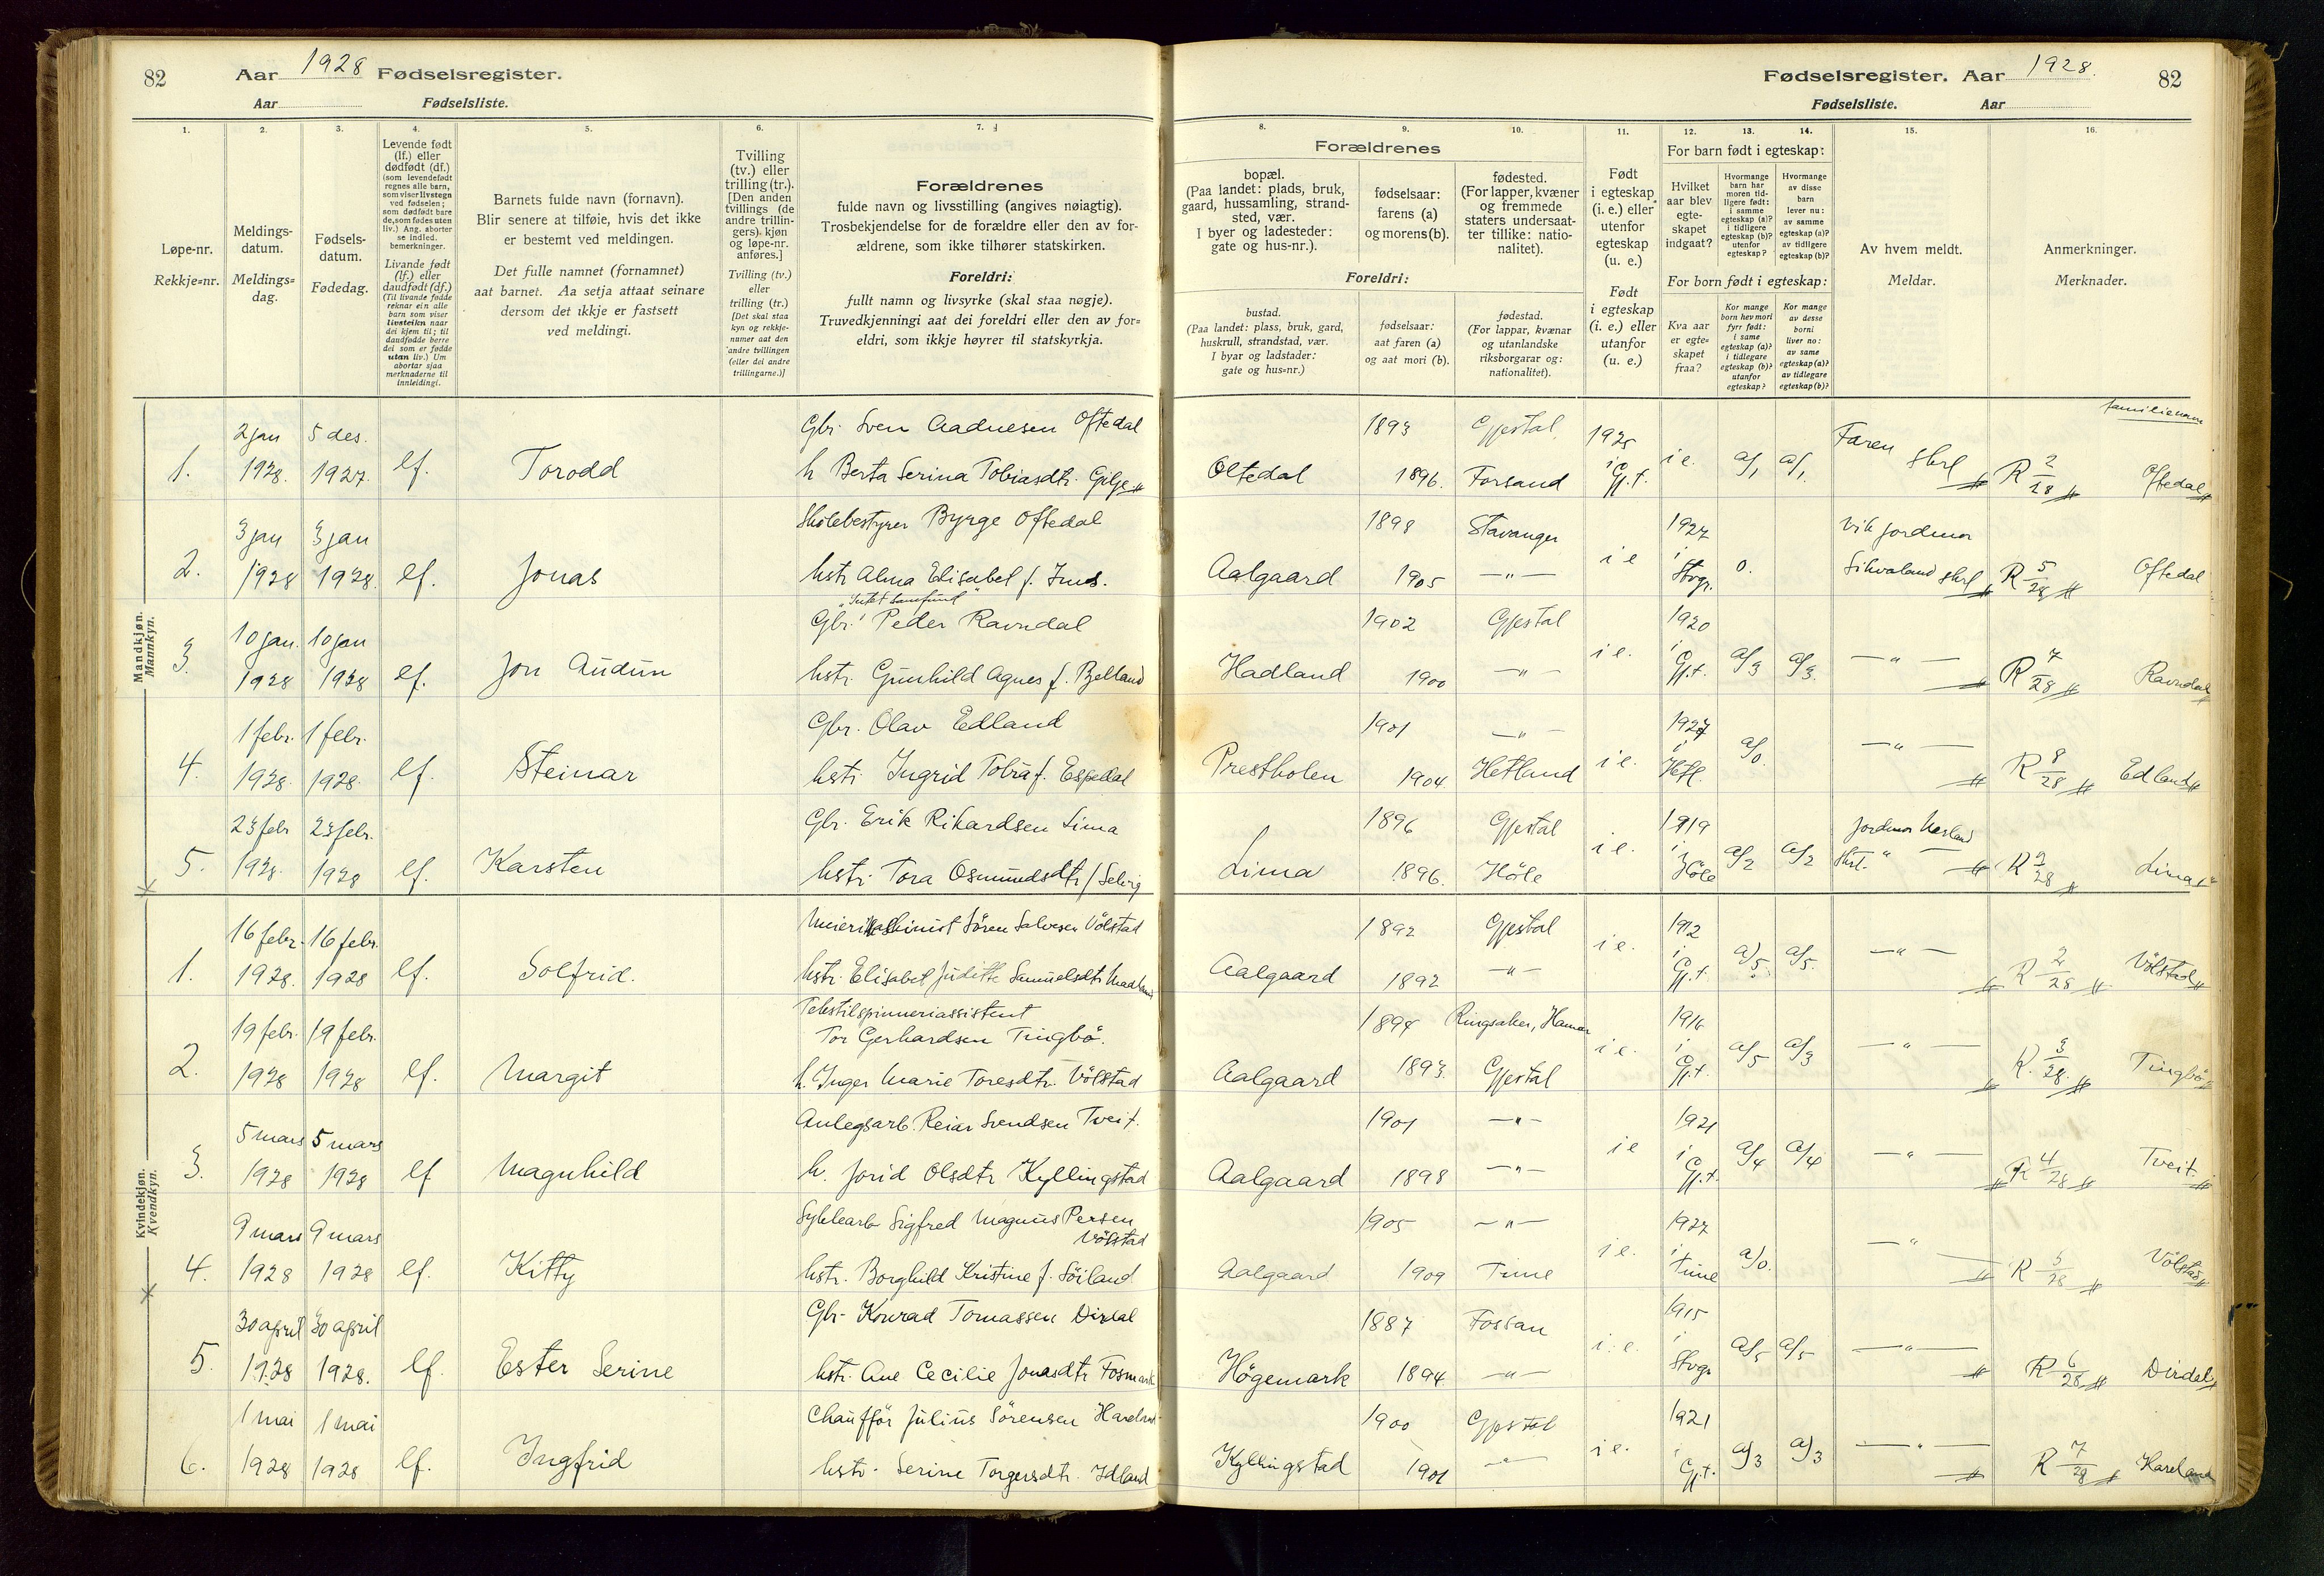 82 Aar 1928 Fødselsregister.
Aar Fødselsliste.
Fødselsregister. Aar 1928. 82
Fødselsliste. Aar
1. 2. 3. 4. 5. 6. 7.
Løpe-nr.
Rekkje=nr.
Meldings-
datum.
Meldings=
dag.
Fødsels-
datum.
Fødedag.
Levende født
(lf.) eller
dødfødt (df.)
(som levendefødt
regnes alle barn,
som viser livstegn
ved fødselen;
som dødfødt bare
de, som fødes uten
liv.) Ang. aborter
se indled.
bemerkninger.
Livande født
(lf.) eller
daudfødt (df.)
(Til livande fødde
reknar ein alle
barn som viser
livsteikn naar
dei kjem til; til
daudfødde berre
dei som er fødde
utan liv.) Um
abortar sjaa
merknaderne til
innleidingi.
Barnets fulde navn (fornavn).
Blir senere at tilføie, hvis det ikke
er bestemt ved meldingen.
Det fulle namnet (fornamnet)
aat barnet. Aa setja attaat seinare
dersom det ikkje er fastsett
ved meldingi.
Tvilling
(tv.) eller
trilling (tr.).
[Den anden
tvillings (de
andre trillin-
gers) kjøn
og løpe-nr.
anføres.]
Tvilling (tv.)
eller
trilling (tr.)
[Det skal staa
kyn og rekkje-
numer aat den
andre tvillingen
(eller dei andre
trillingarne.)]
Forældrenes
fulde navn og livsstilling (angives nøiagtig).
Trosbekjendelse for de forældre eller den av for-
ældrene, som ikke tilhører statskirken.
Foreldri:
fullt namn og livsyrke (skal staa nøgje).
Truvedkjenningi aat dei foreldri eller den av for=
eldri, som ikkje høyrer til statskyrkja.
8. 9. 10. 11. 12. 13. 14. 15. 16.
Forældrenes
bopæl.
(Paa landet: plads, bruk,
gaard, hussamling, strand-
sted, vær.
I byer og ladesteder:
gate og hus-nr.).
fødselsaar:
farens (a)
og morens (b).
fødested.
(For lapper, kvæner
og fremmede
staters undersaat-
ter tillike: natio-
nalitet).
Foreldri:
bustad.
(Paa landet: plass, bruk, gard,
huskrull, strandstad, vær.
I byar og ladstader:
gate og hus=nr.)
fødselsaar:
aat faren (a)
og aat mori (b).
fødestad.
(For lappar, kvænar
og utanlandske
riksborgarar og:
nationalitet).
Født
i egteskap
(i. e.) eller
utenfor
egteskap
(u. e.)
Født
i egteskap
(i. e.) eller
utanfor
(u. e.)
For barn født i egteskap:
Hvilket
aar blev
egte-
skapet
indgaat?
Hvormange
barn har
moren tid-
ligere født:
i samme
egteskap (a)?
utenfor
egteskap?
Hvormange
av disse
barn
lever nu:
av samme
egteskap (a)?
av tidligere
egteskap (b)?
For born født i egteskap:
Kva aar
er egte=
skapet
fraa?
Kor mange
born hev mori
fyrr født:
i same
egteskap (a)?
i tidlegare
egteskap (b)?
utanfor
egteskap?
Kor mange
av desse
borni
liver no:
av same
egteskap (a)?
av tidlegare
egteskap (b)?
Av hvem meldt.
Meldar.
Anmerkninger.
Merknader.
familienavn
Mandkjøn.
Mannkyn.
2 jan 5 des. Gbr. Sven Aadnesen Oftedal 1893 Gjestal 1925 Faren
1. 1928. 1927. lf. Torodd h Berta Serina Tobiasdtr. Gilje Oltedal 1896. Forsand i Gj.t. i e. a/1 a/1 skrl R 2/28 Oftedal
3 jan 3 jan Skolebestyrer Byrge Oftedal 1898 Stavanger 1927 Vik jordmor
2. 1928 1928. lf. Jonas hstr Alma Elisabet f. Ims. Aalgaard 1905 —"— i e i Stvgr. 0. Sikvaland skrl R 5/28 Oftedal
"Intet samfund"
10 jan. 10 jan Gbr. Peder Ravndal 1902 Gjestal 1920
3. 1928 1928 lf. Jon Audun hstr. Gunhild Agnes f. Bjelland Hadland 1900 —"— i e. i Gj.t. a/3 a/3. —"— R 7/28 Ravndal
1 febr. 1 febr. Gbr. Olav Edland 1901 —"— 1927
4. 1928. 1928. lf. Steinar hstr. Ingrid Tobia f. Espedal Prestholen 1904 Hetland i e. i Hetl. a/0. —"— R 8/28 Edland
23 febr 23 febr. Gbr. Erik Rikardsen Lima 1896 Gjestal 1919 Jordmor
5. 1928. 1928 lf. Karsten hstr. Tora Osmundsdtr Selvig Lima 1896. Høle i e. i Høle a/2 a/2 Skrl. " R 9/28 Lima
Kvindekjøn.
Kvendkyn.
16 febr. 16 febr. Meierimaskinist Sören Salvesen Völstad 1892 Gjestal 1912
1. 1928. 1928 lf. Solfrid. hstr. Elisabet Juditte Samuelsdtr Madland Aalgaard 1892 —"— i e. i Gj.t. a/5. a/5. —"— R 2/28 Völstad
19 febr. 19 febr. Tekstilspinneriassistent
Tor Gerhardsen Tingbö. 1894 Ringsaker, Hamar 1916
2. 1928 1928 lf. Margit h. Inger Marie Toresdtr. Völstad Aalgaard 1893. Gjestal i e. i Gj.t. a/5 a/3 —"— R. 3/28. Tingbö
5 mars 5 mars Anlegsarb. Reiar Svendsen Tveit. 1901 —"— 1921
3. 1928 1928 lf Magnhild h. Jorid Olsdtr Kyllingstad Aalgaard 1898 —"— i e i Gj.t. a/4 a/4 —"— R 4/28 Tveit
9 mars 9 mars Syklearb Sigfred Magnus Persen
Völstad 1905 —"— 1927
4. 1928 1928 lf. Kitty hstr. Borghild Kristine f. Söiland Aalgaard 1909 Time i e. i Time a/0. —"— R 5/28 Völstad
30 april 30 april Gbr. Konrad Tomassen Dirdal 1887 Fossan 1915
5. 1928 1928. lf. Ester Serine hstr. Ane Cecilie Jonasdtr Fosmark Högemark 1894 —"— i. e. i Stvgr a/5 a/5 —"— R 6/28 Dirdal
1 mai 1 mai Chaufför Julius Sörensen Hareland 1900 Gjestal 1921
6. 1928 1928 lf. Ingfrid hstr. Serine Torgersdtr. Idland Kyllingstad 1901 —"— i e. i Gj.t. a/3 a/3 —"— R 7/28 Hareland